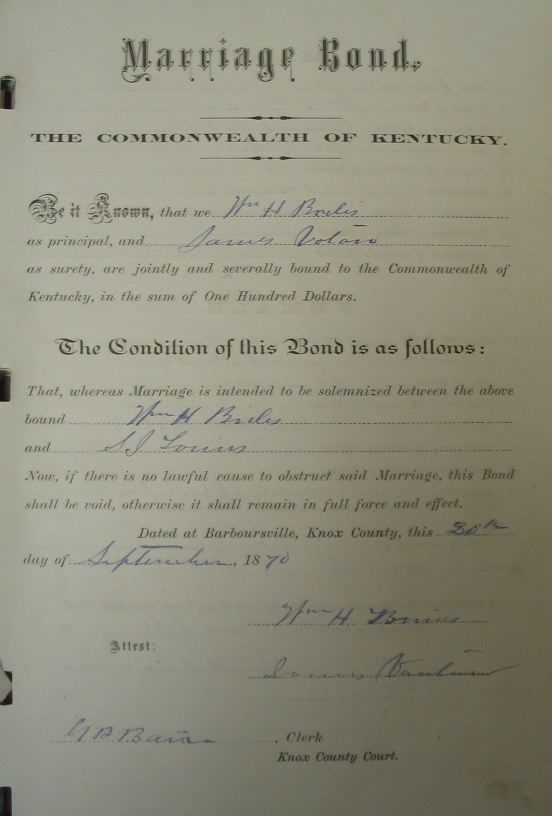 Marriage Bond.
THE COMMONWEALTH OF KENTUCKY.
Be it Known, that we Wm H
as principal, and James
as surety, are jointly and severally bound to the Commonwealth of
Kentucky, in the sum of One Hundred Dollars.
The Condition of this Bond is as follows:
That, whereas Marriage is intended to be solemnized between the above
bound Wm H
and S J
Now, if there is no lawful cause to obstruct said Marriage, this Bond
shall be void, otherwise it shall remain in full force and effect.
Dated at Barboursville, Knox County, this 30th
day of September, 1870
Wm H
Attest:
James
Clerk
Knox County Court.